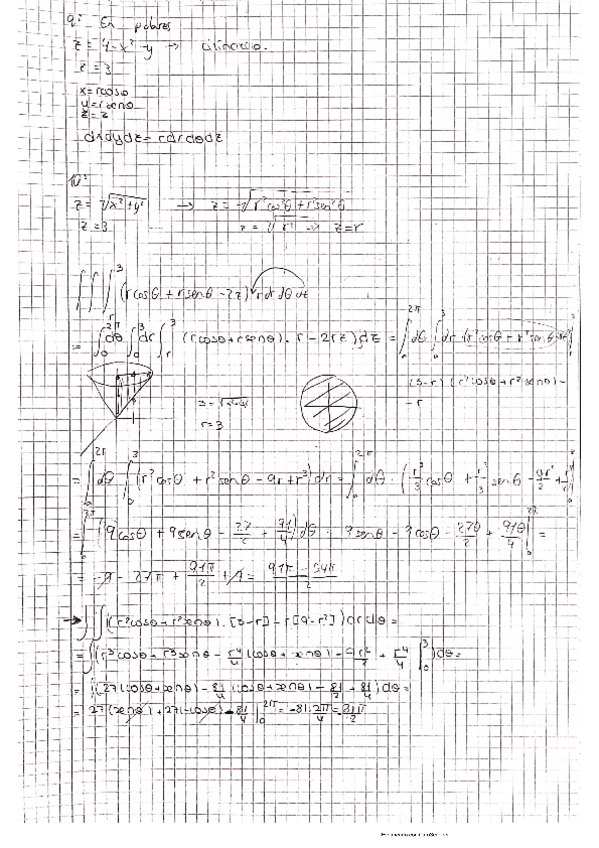 9: En polares
z = 4 - x² - y → cilindro.
z = 3
x = rcosθ
y = rsenθ
z = z
dxdydz = rdrdθdz
10:
z = √x² + y² → z = √r²cos²θ + r²sen²θ
z = 3 z = √r² → z = r
∫∫∫ᵣ³ (rcosθ + rsenθ - 2z) r dr dθ dz
= ∫₀²π dθ ∫₀³ dr ∫ᵣ³ (rcosθ + rsenθ) · r - 2rz) dz = ∫₀²π dθ ∫₀³ dr (r²cosθ + r²senθ
(3-r) (r²cosθ + r²senθ) -
- r
r = 3
= ∫₀²π dθ ∫₀³ (r²cosθ + r²senθ - 9r + r³) dr = ∫₀²π dθ · (r³/3 cosθ + r³/3 senθ - 9r²/2 +
= ∫ (9cosθ + 9senθ - 27/2 + 91/4) dθ 9senθ - 9cosθ - 27θ/2 + 91θ/4 =
= -9 - 27π + 91π/2 + 9 = 91π - 54π/2
→ ∫∫ (r²cosθ + r²senθ) · [3-r] - r[9-r²]) drdθ =
= ∫ (r³cosθ + r³senθ - r⁴/4 (cosθ + senθ) - 9r²/2 + r⁴/4 |₀³) dθ =
= ∫ (27(cosθ + senθ) - 81/4 (cosθ + senθ) - 81/2 + 81/4) dθ =
= 27(senθ) + 27(-cosθ) - 81/4 |₀²π = -81·2π/4 = 81π/2